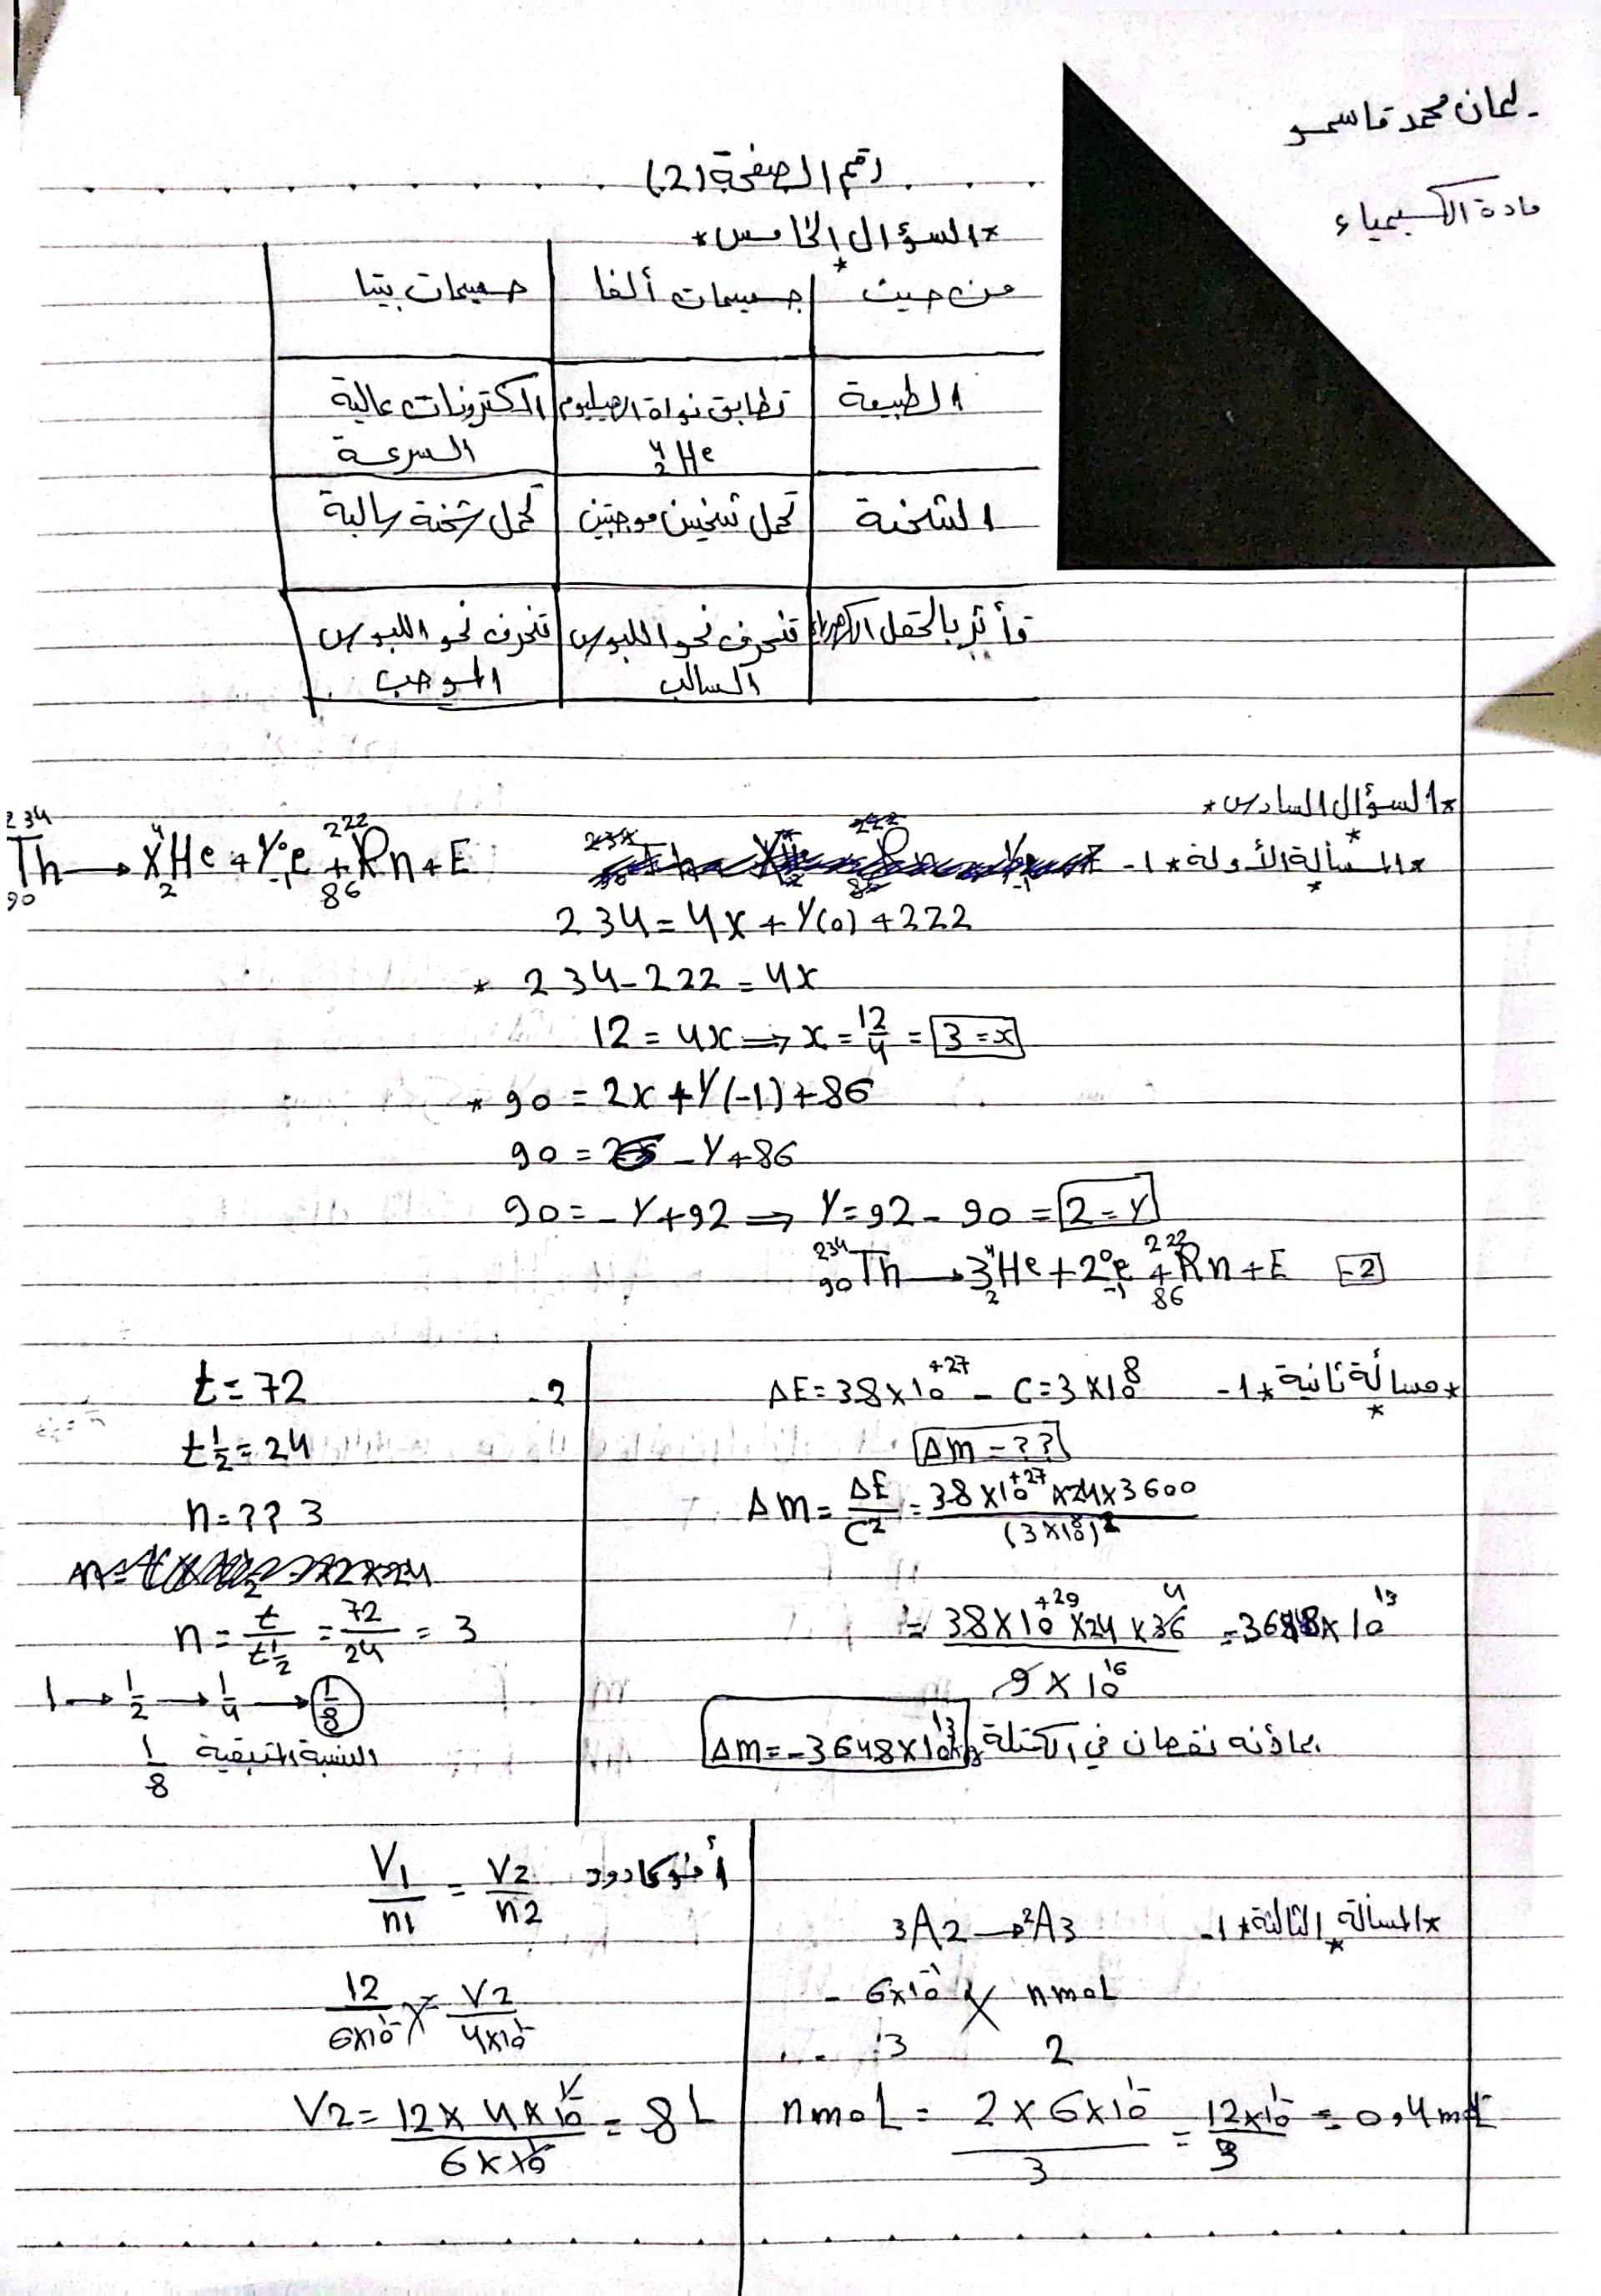 ليمان محمد قاسمو
مادة الكيمياء
رقم الصفحة (2)
*السؤال الخامس*
من حيث | جسيمات ألفا | جسيمات بيتا
الطبيعة | تطابق نواة الهيليوم ⁴₂He | الكترونات عالية السرعة
الشحنة | تحمل شحنتين موجبتين | تحمل شحنة سالبة
تأثر بالحقل الكهربائي | تنحرف نحو اللبوس السالب | تنحرف نحو اللبوس الموجب
*السؤال السادس*
*المسألة الأولة* 1-
²³⁴₉₀Th → X⁴₂He + Y⁰₋₁e + ²²²₈₆Rn + E
234 = 4X + Y(0) + 222
* 234 - 222 = 4X
12 = 4x ⇒ x = 12/4 = 3 = x
* 90 = 2x + Y(-1) + 86
90 = 6 - Y + 86
90 = - Y + 92 ⇒ Y = 92 - 90 = 2 = Y
2- ²³⁴₉₀Th → 3⁴₂He + 2⁰₋₁e + ²²²₈₆Rn + E
*مسألة ثانية* 1-
ΔE = 38 × 10⁺²⁷ - C = 3 × 10⁸
Δm = ??
Δm = ΔE/C² = 38 × 10⁺²⁷ × 24 × 3600 / (3 × 10⁸)²
= 38 × 10⁺²⁹ × 24 × 36 / 9 × 10¹⁶ = 3648 × 10¹³
بما أنه نقصان في الكتلة Δm = -3648 × 10¹³ kg
2-
t = 72
t½ = 24
n = ?? 3
n = t/t½ = 72/24 = 3
1 → 1/2 → 1/4 → 1/8
النسبة المتبقية 1/8
*المسألة الثالثة* 1-
3A2 → 2A3
6×10⁻¹ nmol
3 2
nmol = 2 × 6×10⁻¹ / 3 = 12×10⁻¹ / 3 = 0,4 mol
أفوكادرو V1/n1 = V2/n2
12/6×10⁻¹ = V2/4×10⁻¹
V2 = 12 × 4 × 10⁻¹ / 6 × 10⁻¹ = 8 L